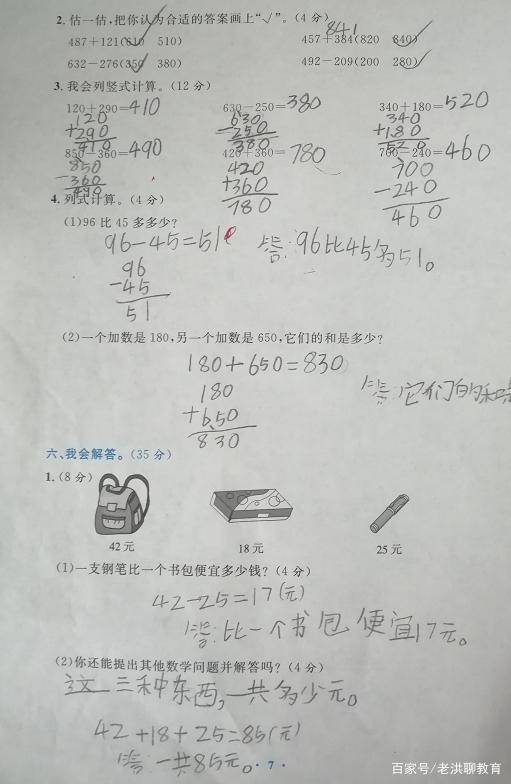 2. 估一估,把你认为合适的答案画上“√”。(4 分)
841
487+121(610 510) 457+384(820 840)
632-276(350 380) 492-209(200 280)
3. 我会列竖式计算。(12 分)
120+290=410 630-250=380 340+180=520
120 630 340
+290 -250 +180
410 380 520
850-360=490 420+360=780 700-240=460
850 420 700
-360 +360 -240
490 780 460
4. 列式计算。(4 分)
(1)96 比 45 多多少?
96-45=51 答:96比45多51。
96
-45
51
(2)一个加数是 180,另一个加数是 650,它们的和是多少?
180+650=830
180 答:它们的和是
+650
830
六、我会解答。(35 分)
1. (8 分)
42 元 18 元 25 元
(1)一支钢笔比一个书包便宜多少钱? (4 分)
42-25=17(元)
答:比一个书包便宜17元。
(2)你还能提出其他数学问题并解答吗? (4 分)
这三种东西,一共多少元。
42+18+25=85(元)
答:一共85元。
· 7 ·
百家号/老洪聊教育